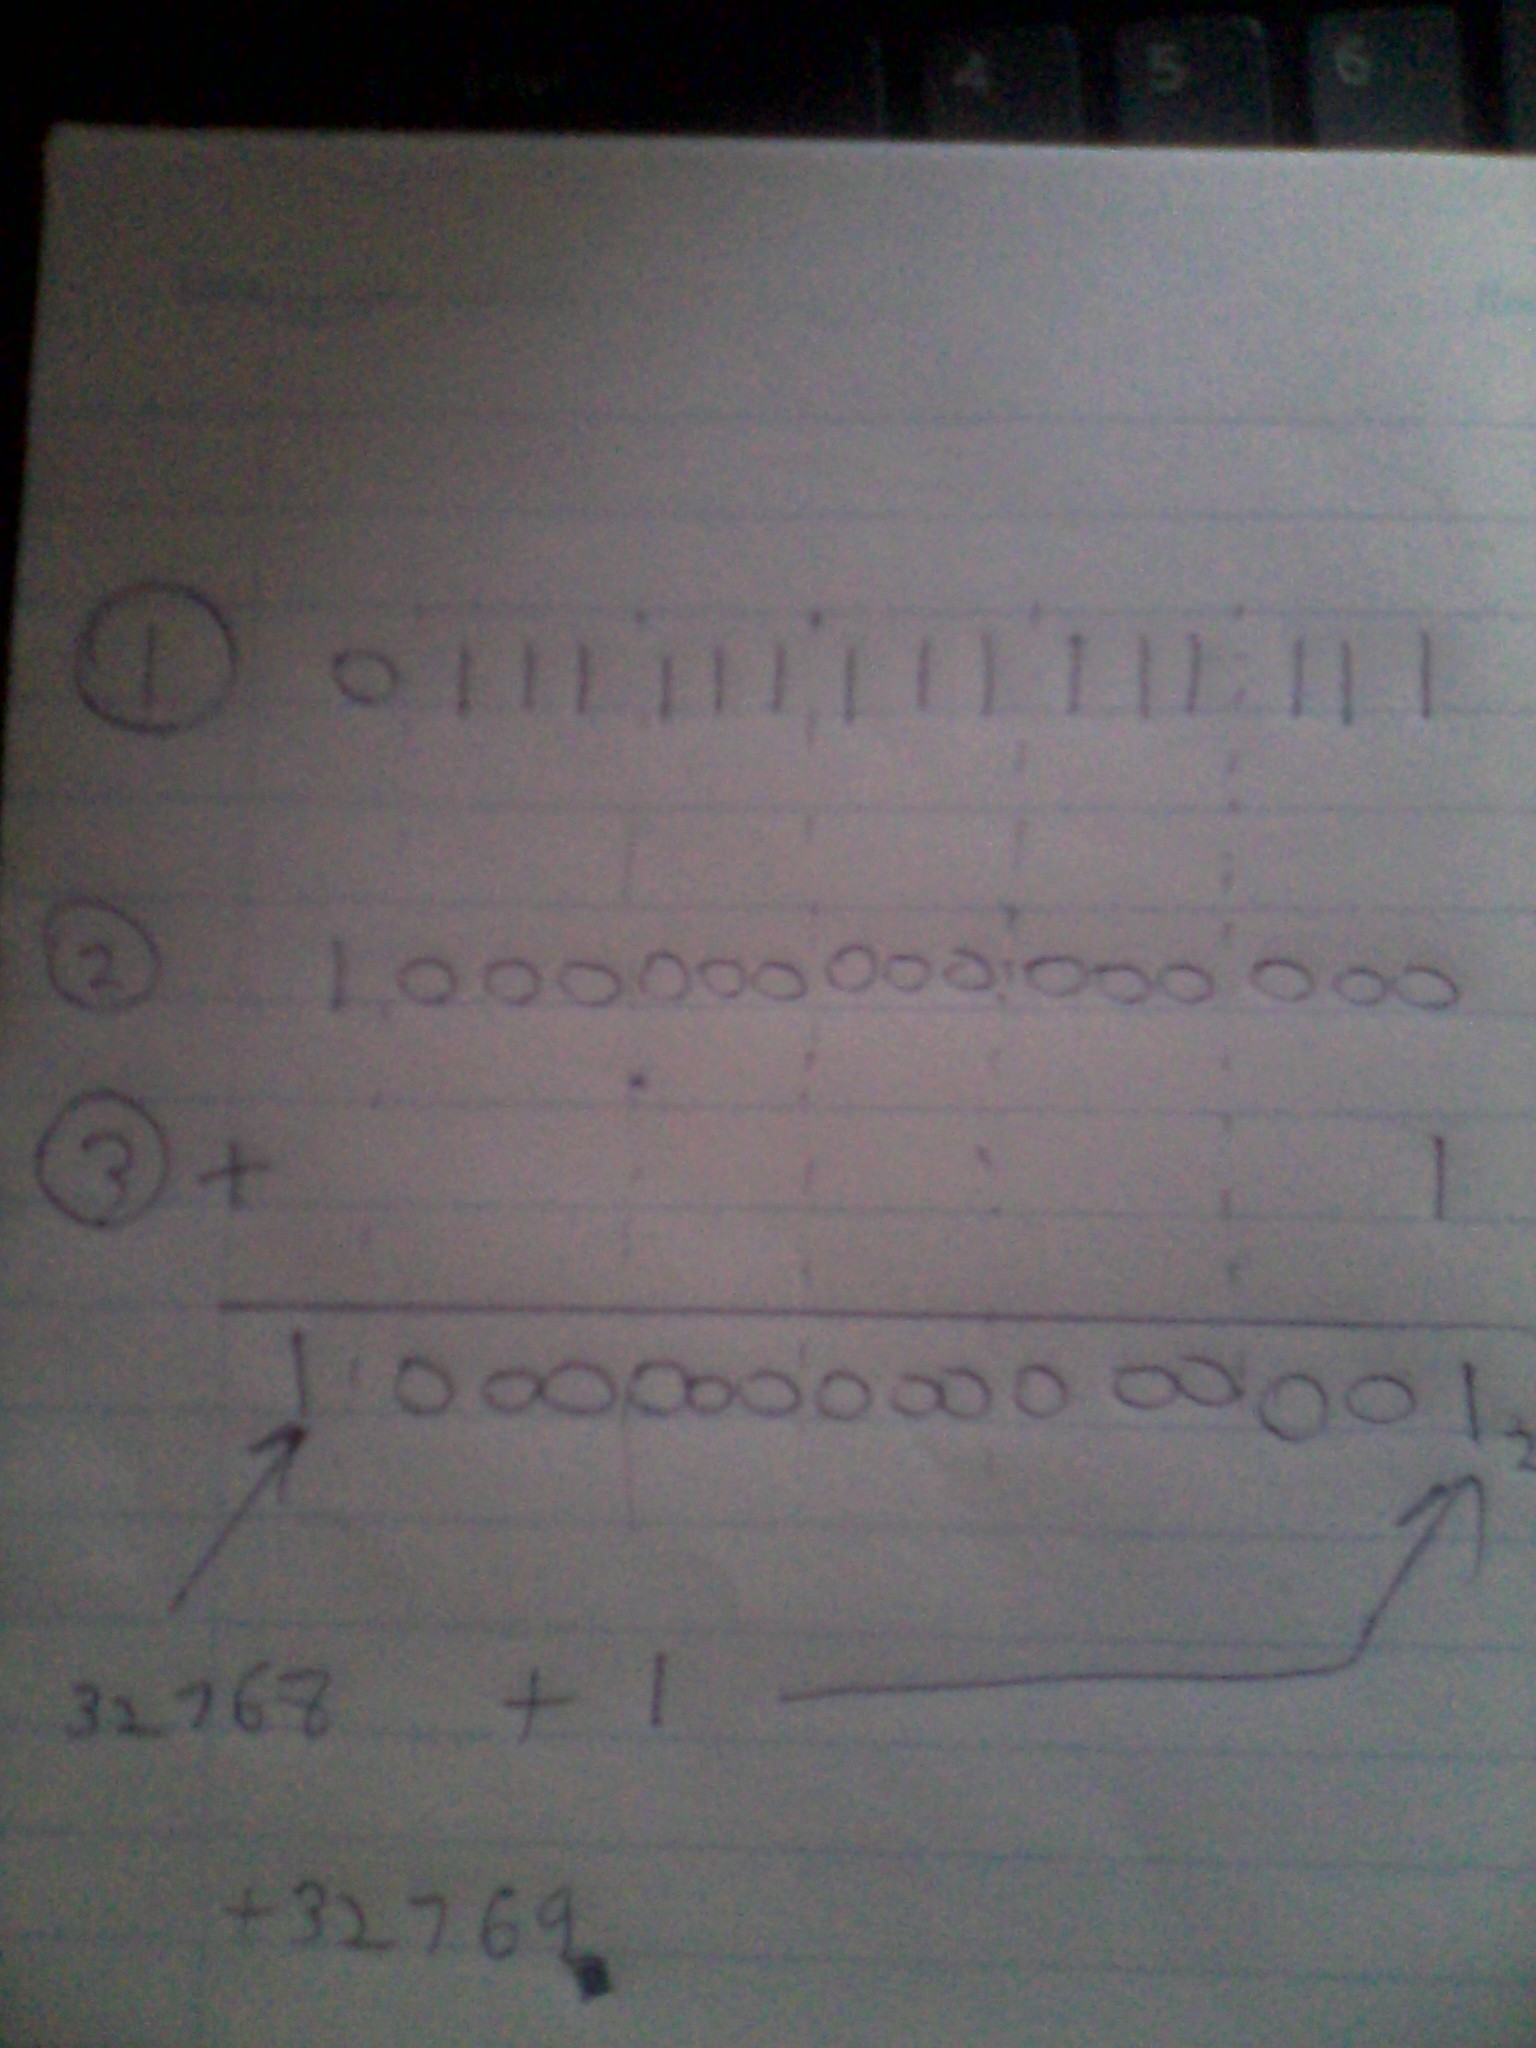 4 5 6
① 0 111 111 111 111 111
② 1 000 000 000 000 000
③ + 1
1 000 000 000 000 001₂
32768 + 1
+32769